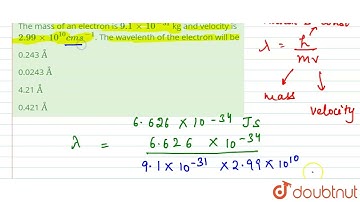 The mass of an electron is 9.1 × 10⁻³¹ kg and velocity is
2.99 × 10¹⁰ cms⁻¹. The wavelenth of the electron will be
0.243 Å
0.0243 Å
4.21 Å
0.421 Å
λ = h / mv
mass
velocity
6.626 × 10⁻³⁴ JS
λ = 6.626 × 10⁻³⁴
9.1 × 10⁻³¹ × 2.99 × 10¹⁰
doubtnut